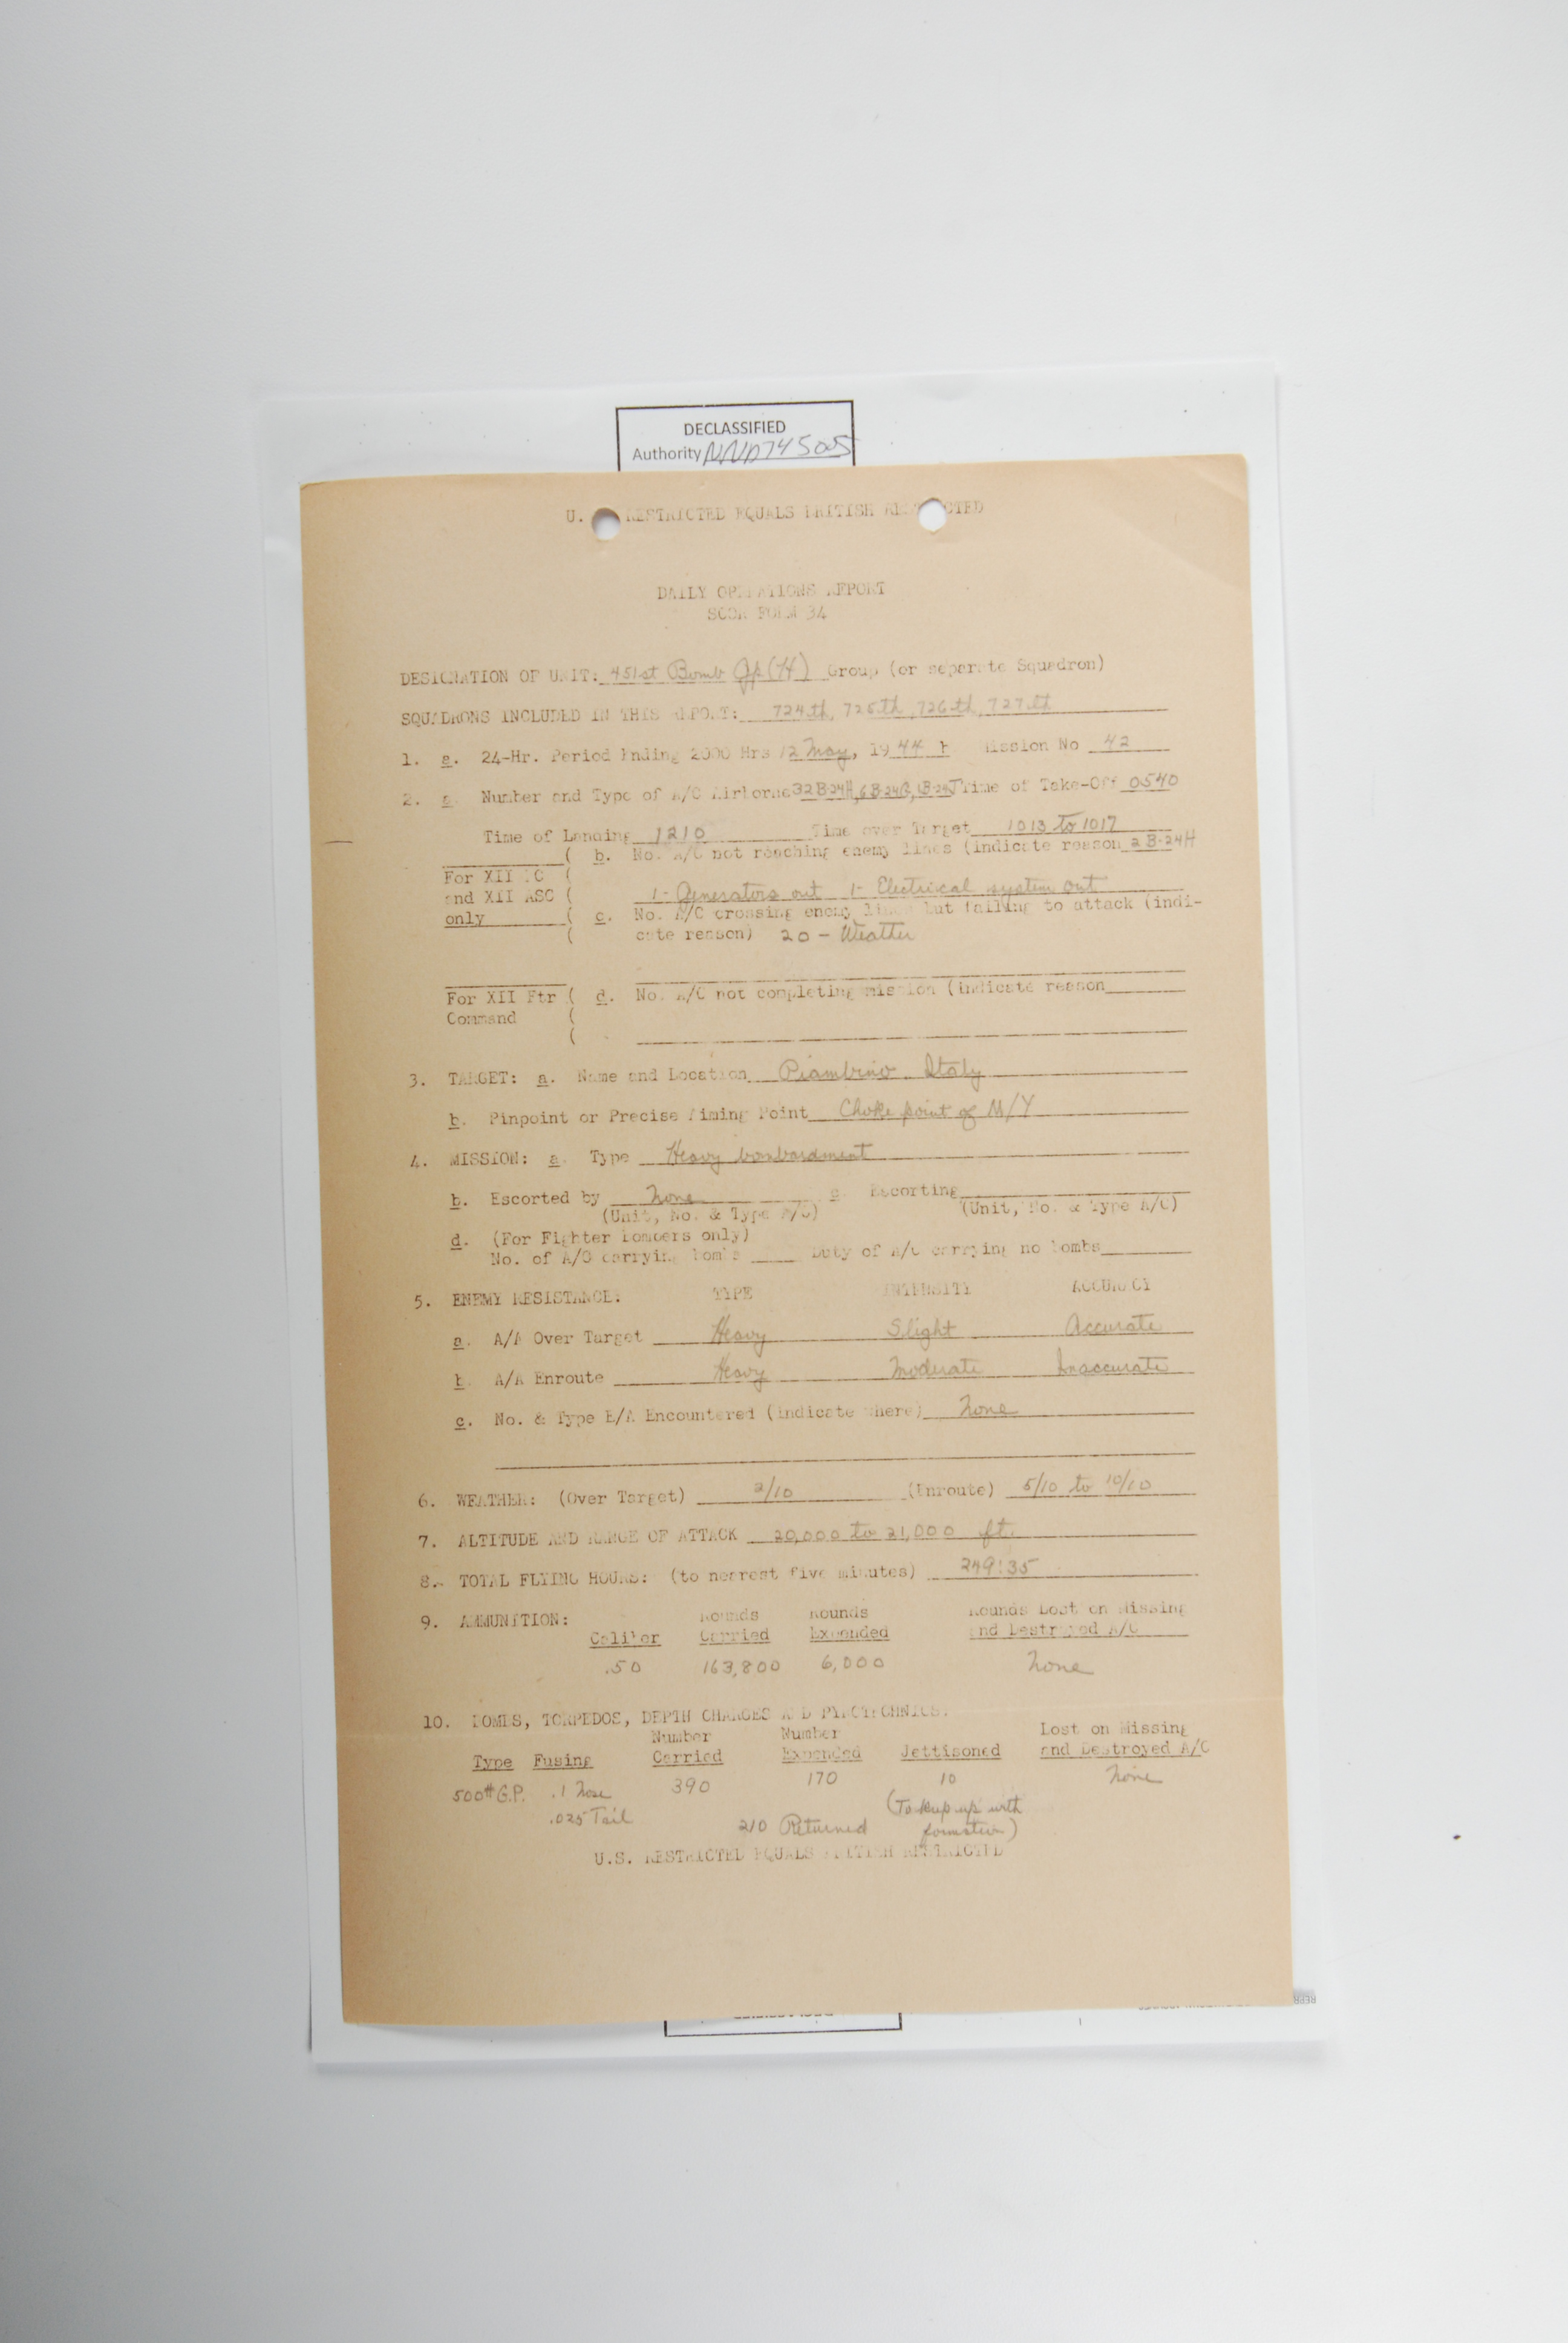 DECLASSIFIED
Authority NND745005
U. RESTRICTED EQUALS BRITISH RESTRICTED
DAILY OPERATIONS REPORT
SCOR FORM 34
DESIGNATION OF UNIT: 451st Bomb Gp(H) Group (or separate Squadron)
SQUADRONS INCLUDED IN THIS REPORT: 724th, 725th, 726th, 727th
1. a. 24-Hr. Period Ending 2000 Hrs 12 May, 1944 Mission No 42
2. a. Number and Type of A/C Airborne 32 B-24H, 6 B-24G, 1B-24J Time of Take-Off 0540
Time of Landing 1210 Time over Target 1013 to 1017
( b. No. A/C not reaching enemy lines (indicate reason 2 B-24H
For XII (
and XII ASC ( 1- Generators out 1- Electrical system out
only ( c. No. A/C crossing enemy lines but failing to attack (indi-
( cate reason) 20 - Weather
For XII Ftr ( d. No. A/C not completing mission (indicate reason
Command (
(
3. TARGET: a. Name and Location Piambino Italy
b. Pinpoint or Precise Aiming Point Choke point of M/Y
4. MISSION: a. Type Heavy bombardment
b. Escorted by None c. Escorting
(Unit, No. & Type A/C) (Unit, No. & Type A/C)
d. (For Fighter Bombers only)
No. of A/C carrying bombs Duty of A/C carrying no bombs
5. ENEMY RESISTANCE: TYPE INTENSITY ACCURACY
a. A/A Over Target Heavy Slight Accurate
b. A/A Enroute Heavy Moderate Inaccurate
c. No. & Type E/A Encountered (indicate where) None
6. WEATHER: (Over Target) 2/10 (Enroute) 5/10 to 10/10
7. ALTITUDE AND RANGE OF ATTACK 20,000 to 21,000 ft.
8. TOTAL FLYING HOURS: (to nearest five minutes) 249:35
9. AMMUNITION: Rounds Rounds Rounds Lost on Missing
Caliber Carried Expended and Destroyed A/C
.50 163,800 6,000 None
10. BOMBS, TORPEDOS, DEPTH CHARGES AND PYROTECHNICS:
Number Number Lost on Missing
Type Fusing Carried Expended Jettisoned and Destroyed A/C
500# G.P. .1 Nose 390 170 10 None
.025 Tail 210 Returned (To keep up with
formation)
U.S. RESTRICTED EQUALS BRITISH RESTRICTED